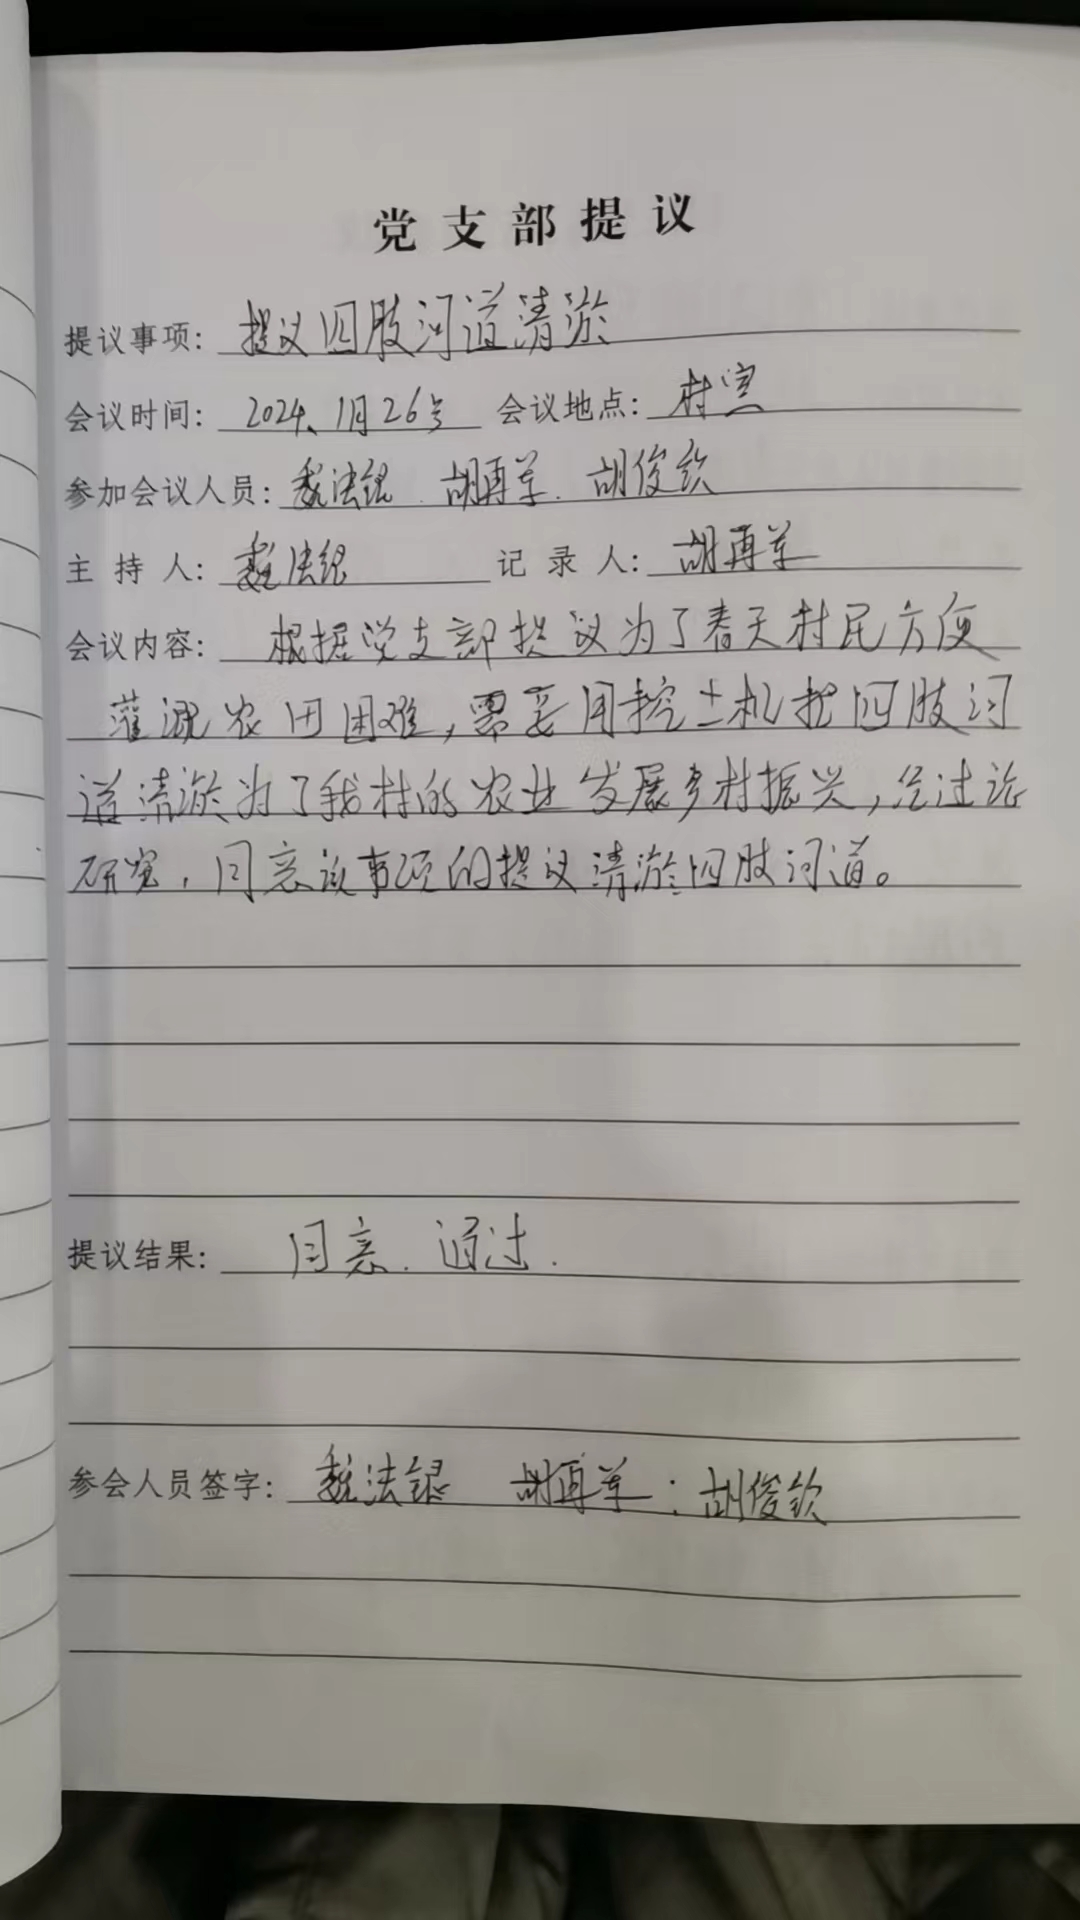 党支部提议
提议事项: 提议四肢河道清淤
会议时间: 2024、1月26号 会议地点: 村室
参加会议人员: 魏法银. 胡再军. 胡俊钦
主持人: 魏法银 记录人: 胡再军
会议内容: 根据党支部提议为了春天村民方便
灌溉农田困难,需要用挖土机把四肢河
道清淤为了我村的农业发展乡村振兴,经过论
研究,同意该事项的提议清淤四肢河道。
提议结果: 同意.通过.
参会人员签字: 魏法银 胡再军: 胡俊钦